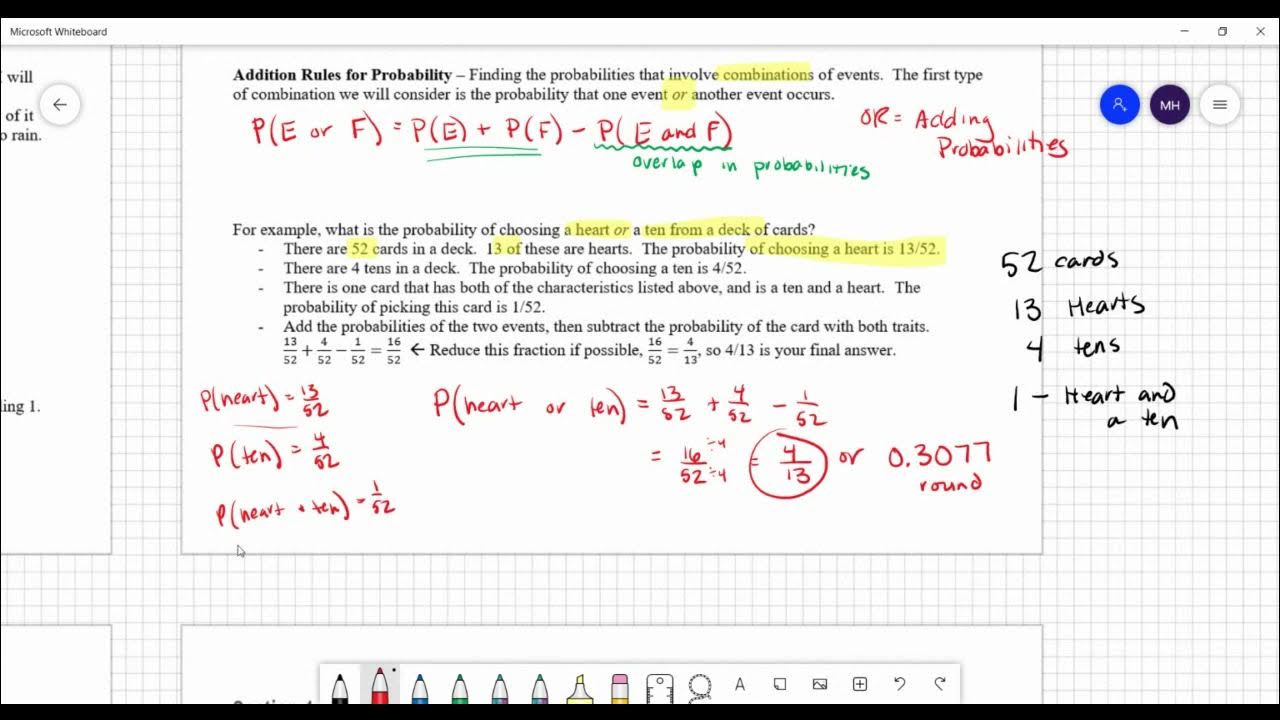 Microsoft Whiteboard
will
of it
rain.
ing 1.
Addition Rules for Probability – Finding the probabilities that involve combinations of events. The first type
of combination we will consider is the probability that one event or another event occurs.
P(E or F) = P(E) + P(F) - P(E and F)
overlap in probabilities
OR = Adding
Probabilities
MH
For example, what is the probability of choosing a heart or a ten from a deck of cards?
- There are 52 cards in a deck. 13 of these are hearts. The probability of choosing a heart is 13/52.
- There are 4 tens in a deck. The probability of choosing a ten is 4/52.
- There is one card that has both of the characteristics listed above, and is a ten and a heart. The
probability of picking this card is 1/52.
- Add the probabilities of the two events, then subtract the probability of the card with both traits.
13/52 + 4/52 − 1/52 = 16/52 ← Reduce this fraction if possible, 16/52 = 4/13, so 4/13 is your final answer.
52 cards
13 Hearts
4 tens
1 - Heart and
a ten
P(heart) = 13/52
P(ten) = 4/52
P(heart + ten) = 1/52
P(heart or ten) = 13/52 + 4/52 - 1/52
= 16÷4/52÷4 = 4/13 or 0.3077
round
A